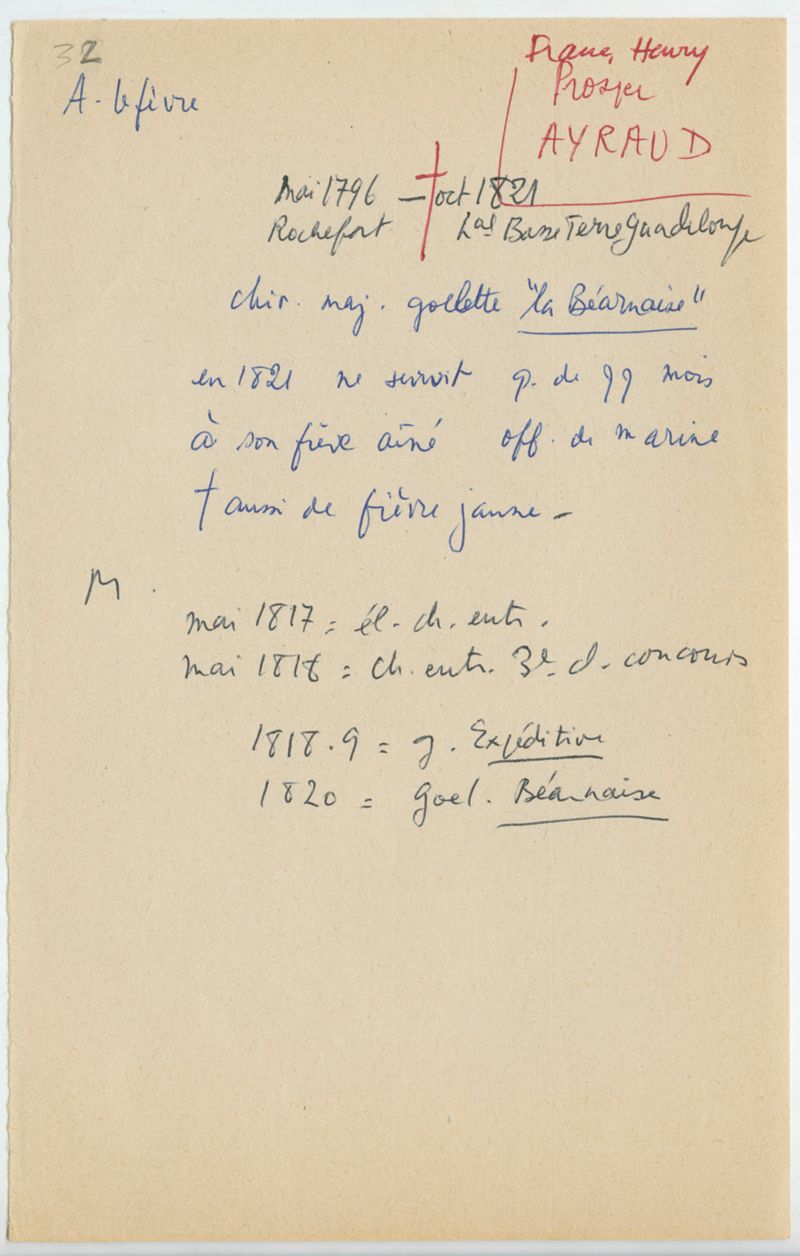 32
A. lefèvre
Franc. Henry
Prosper
AYRAUD
mai 1796 — † oct 1821
Rochefort hal Basse Terre Guadeloupe
chir. maj. goelette "la Béarnaise"
en 1821 ne survit q. de qq mois
à son frère aîné off. de marine
† aussi de fièvre jaune -
M.
mai 1817 = él. ch. entr.
mai 1818 = ch. entr. 3e cl. concours
1818.9 = g. Expéditive
1820 = Goel. Béarnaise